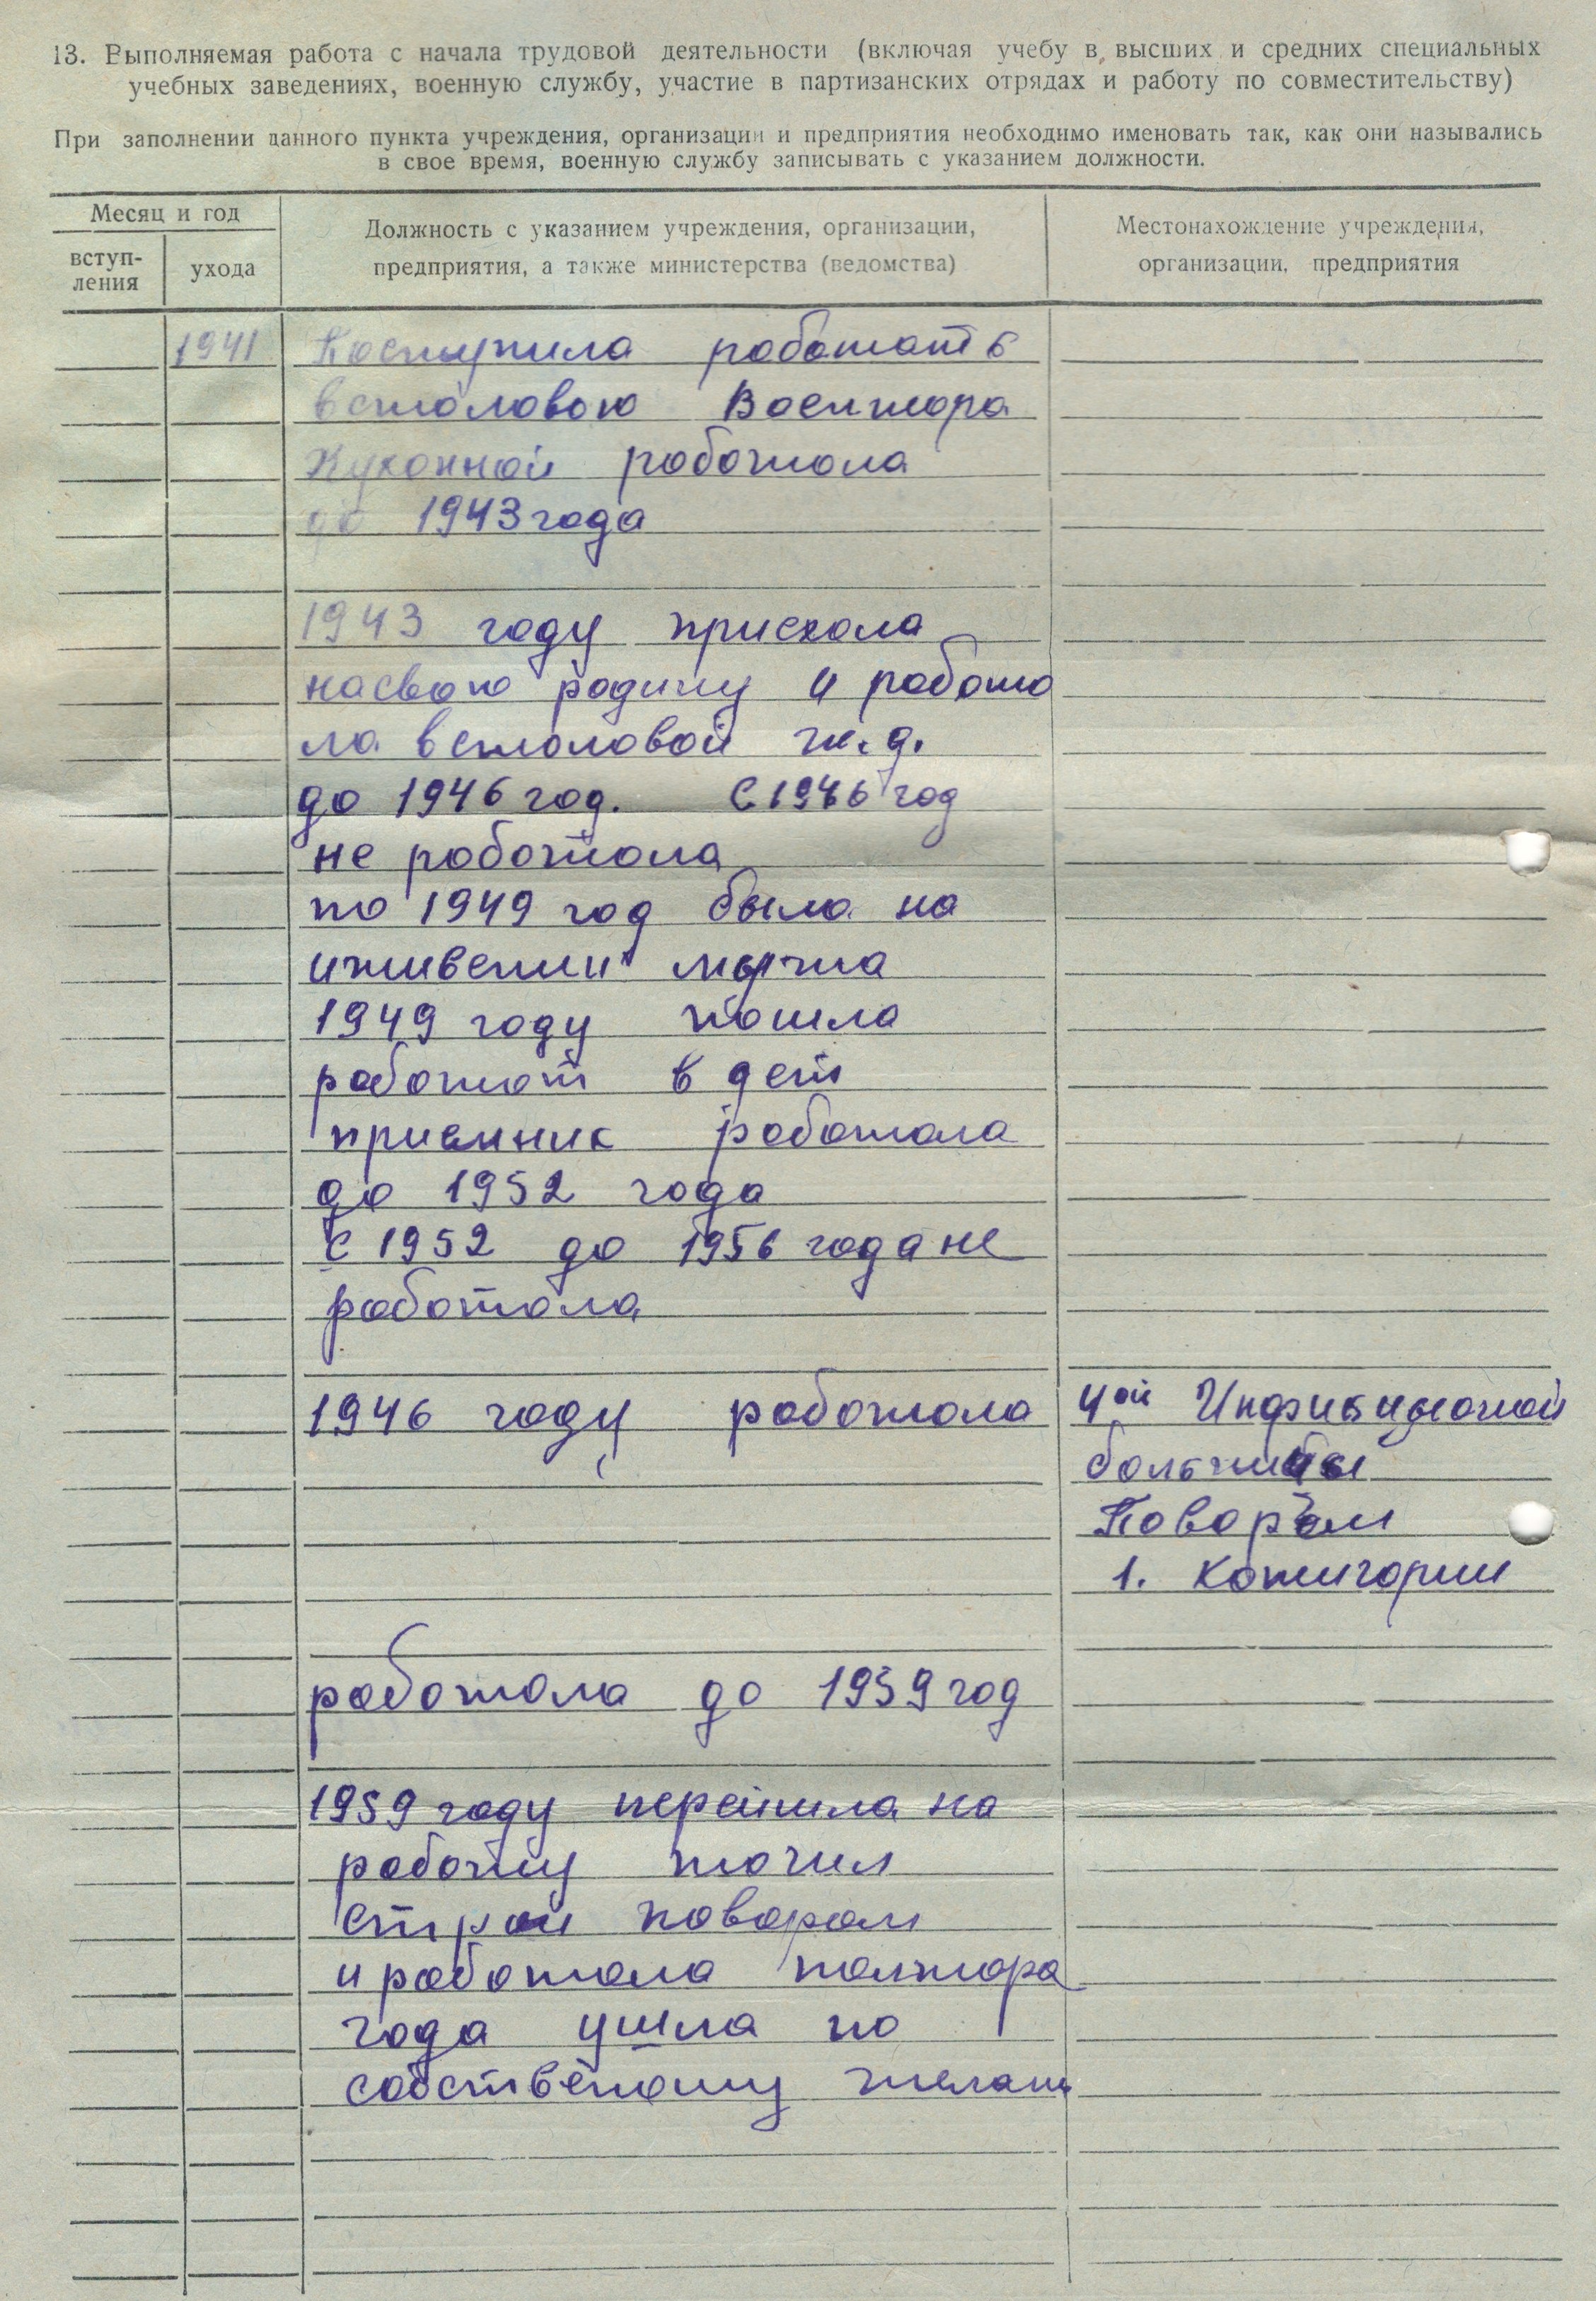 13. Выполняемая работа с начала трудовой деятельности (включая учебу в высших и средних специальных
учебных заведениях, военную службу, участие в партизанских отрядах и работу по совместительству)
При заполнении данного пункта учреждения, организации и предприятия необходимо именовать так, как они назывались
в свое время, военную службу записывать с указанием должности.
Месяц и год
вступ-
ления
ухода
Должность с указанием учреждения, организации,
предприятия, а также министерства (ведомства)
Местонахождение учреждения,
организации, предприятия
1941 Поступила роботать
встоловою Военторга
Кухонной роботола
до 1943 года
1943 году приехала
насвою родину и работо
ла встоловой ж.д.
до 1946 год. С 1946 год
не роботола
по 1949 год была на
иживении мужа
1949 году пошла
работот в дет
приемник роботала
до 1952 года
с 1952 до 1956 года не
работола
1946 году роботола 4ой
больницы
Поваром
1. Котигории
роботола до 1959 год
1959 году перешла на
работу точил
строй поваром
и роботола полтора
года ушла по
собственому